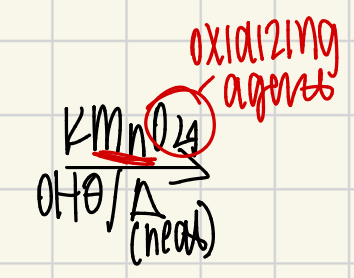 oxidizing
agents
KMnO4
OHθ/Δ
(heat)